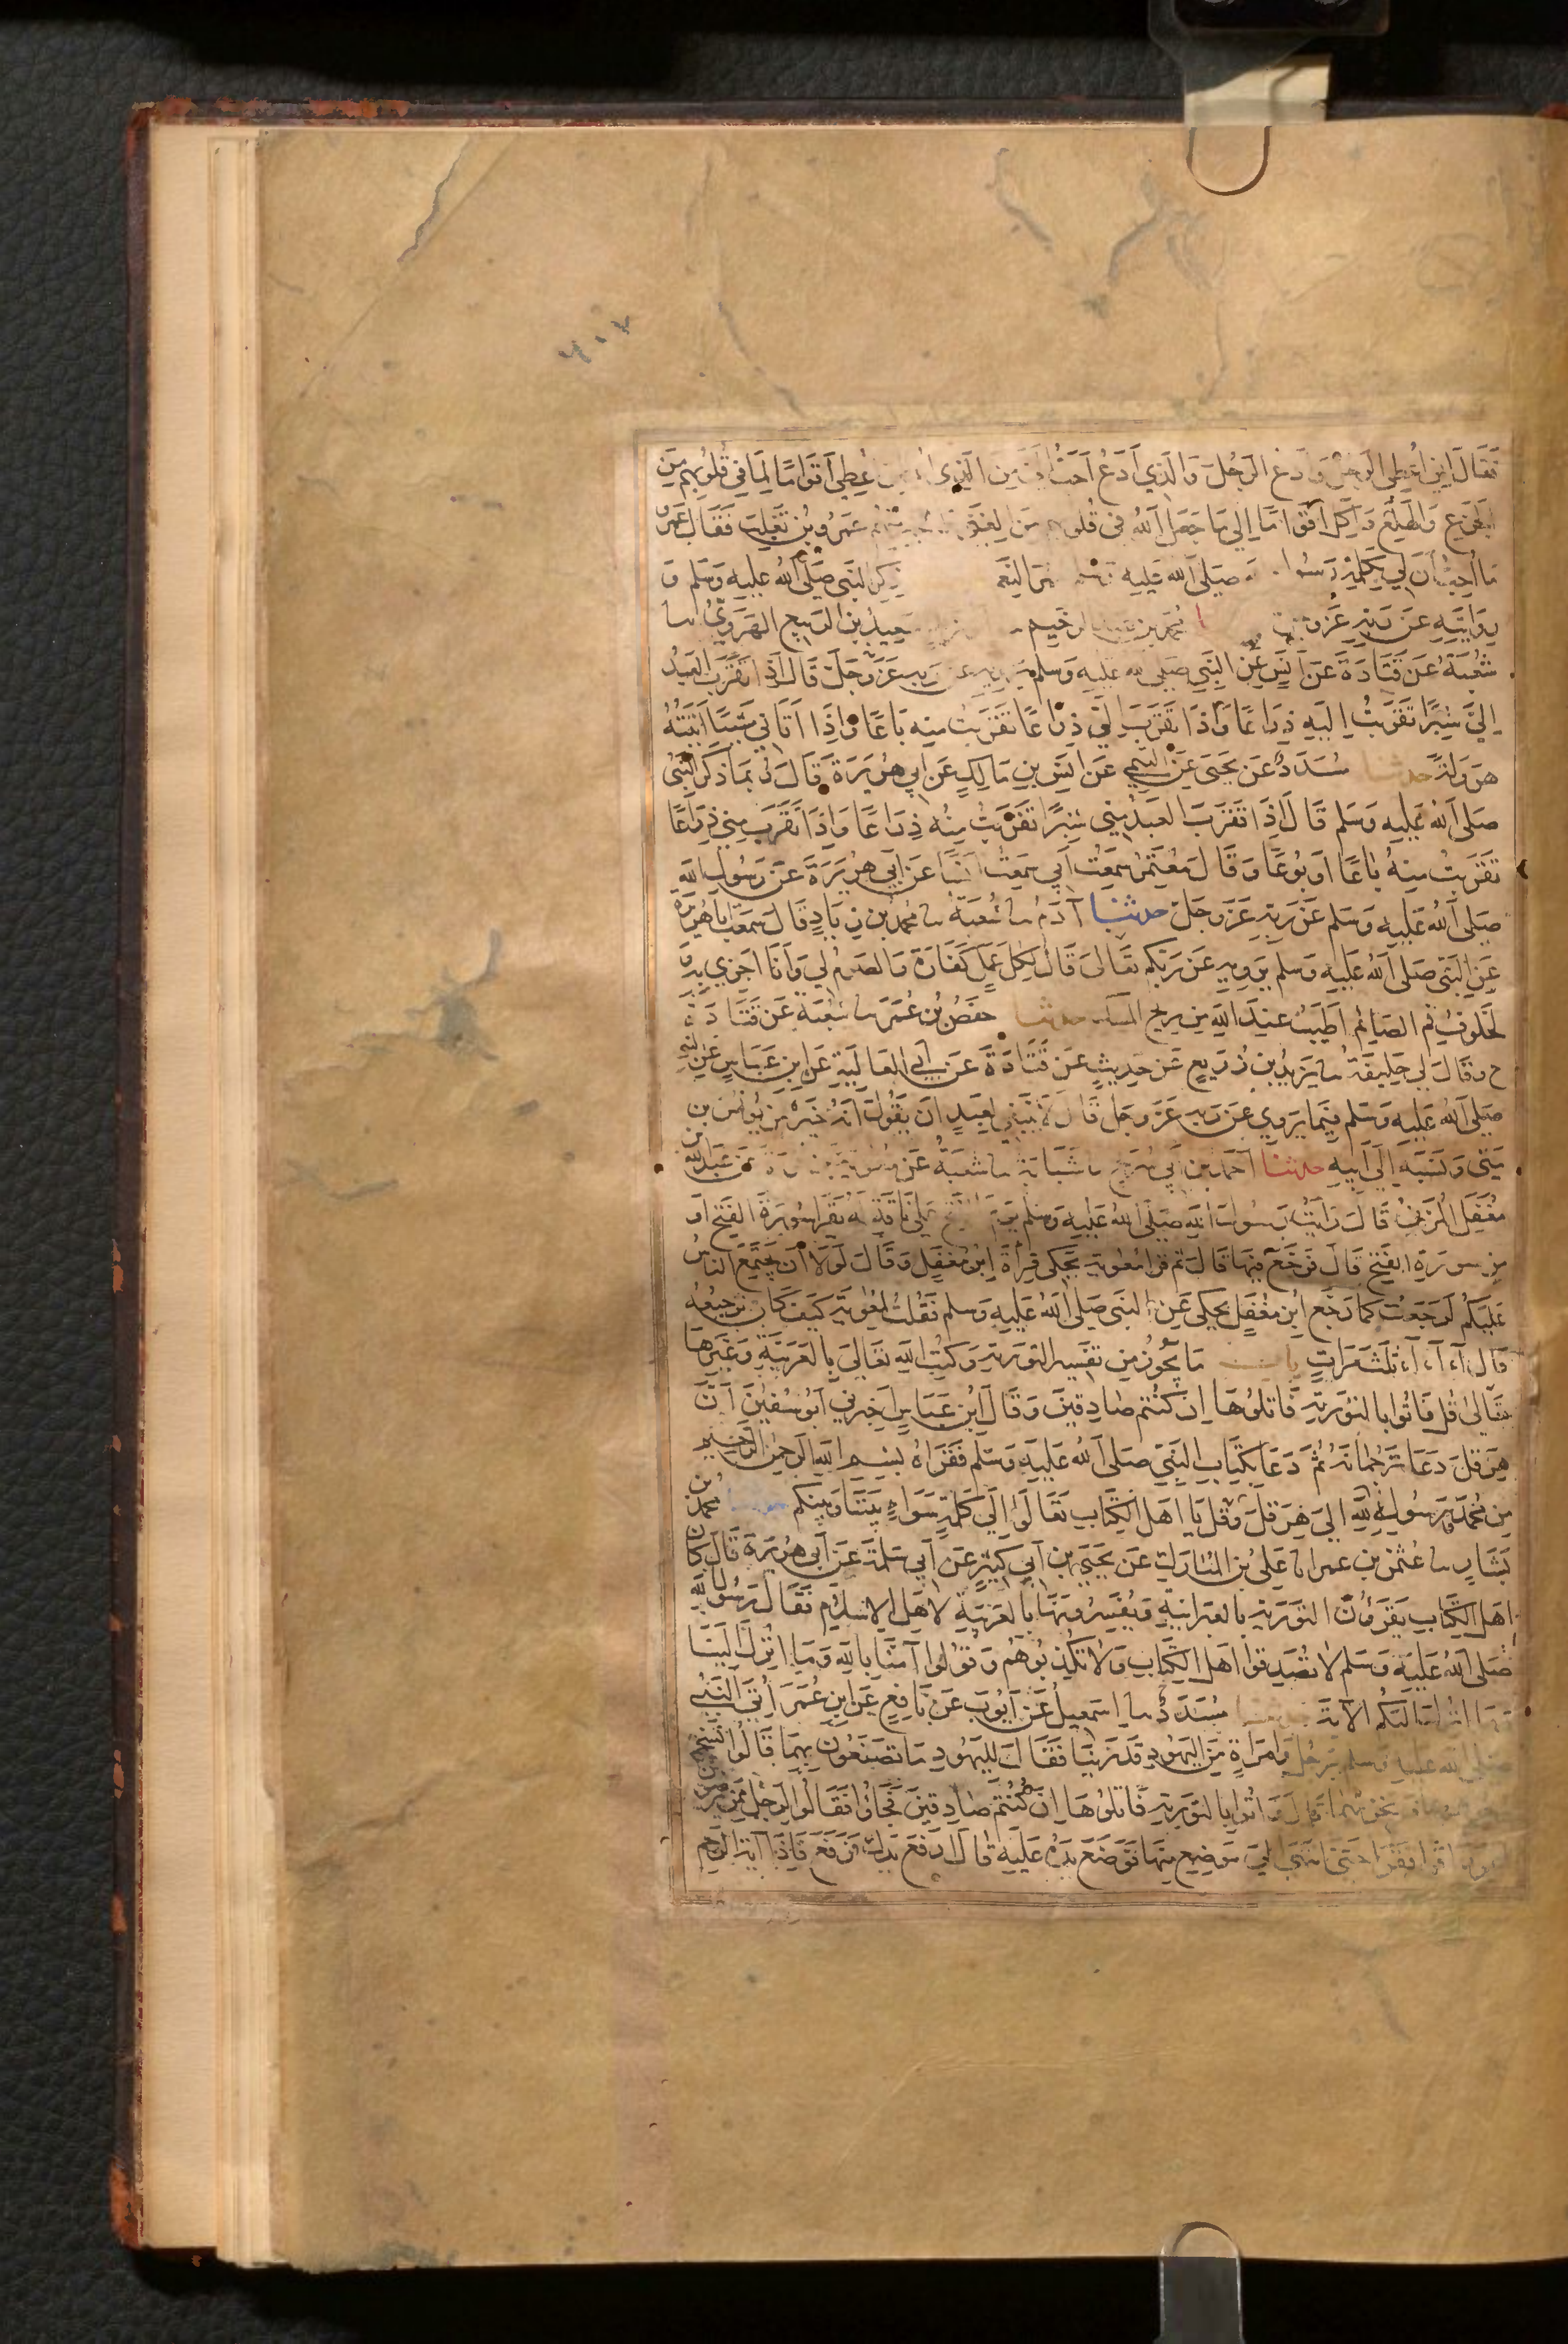 ٧٠٠٢
فَقَالَ اِنِّي اُعْطِي الرَّجُلَ وَاَدَعُ الرَّجُلَ وَالَّذِي اَدَعُ اَحَبُّ اِلَيَّ مِنَ الَّذِي اُعْطِي اَقْوَامًا لِمَا فِي قُلُوبِهِمْ مِنَ
الجَزَعِ وَالهَلَعِ وَاَكِلُ اَقْوَامًا اِلَى مَا جَعَلَ اللهُ فِي قُلُوبِهِم مِنَ الغِنَى عَمْرُو بْنُ تَغْلِبَ فَقَالَ عَمْرٌو
مَا اُحِبُّ اَنَّ لِي بِكَلِمَةِ رَسُولِ صَلَّى اللهُ عَلَيْهِ حُمْرَ النَّعَمِ ذِكْرِ النَّبِيِّ صَلَّى اللهُ عَلَيْهِ وَسَلَّمَ وَ
رِوَايَتِهِ عَنْ رَبِّهِ عَزَّ وَ مُحَمَّدُ بْنُ عَبْدِ الرَّحِيمِ سَعِيدُ بْنُ الرَّبِيعِ الهَرَوِيُّ ثنا
شُعْبَةُ عَنْ قَتَادَةَ عَنْ اَنَسٍ عَنِ النَّبِيِّ صَلَّى اللهُ عَلَيْهِ وَسَلَّمَ يَرْوِيهِ عَنْ رَبِّهِ عَزَّ وَجَلَّ قَالَ اِذَا تَقَرَّبَ العَبْدُ
اِلَيَّ شِبْرًا تَقَرَّبْتُ اِلَيْهِ ذِرَاعًا وَاِذَا تَقَرَّبَ اِلَيَّ ذِرَاعًا تَقَرَّبْتُ مِنْهُ بَاعًا وَاِذَا اَتَانِي مَشْيًا اَتَيْتُهُ
هَرْوَلَةً حدثنا مُسَدَّدٌ عَنْ يَحْيَى عَنِ التَّيْمِيِّ عَنْ اَنَسِ بْنِ مَالِكٍ عَنْ اَبِي هُرَيْرَةَ قَالَ رُبَّمَا ذَكَرَ النَّبِيَّ
صَلَّى اللهُ عَلَيْهِ وَسَلَّمَ قَالَ اِذَا تَقَرَّبَ العَبْدُ مِنِّي شِبْرًا تَقَرَّبْتُ مِنْهُ ذِرَاعًا وَاِذَا تَقَرَّبَ مِنِّي ذِرَاعًا
تَقَرَّبْتُ مِنْهُ بَاعًا اَوْ بُوعًا وَقَالَ مُعْتَمِرٌ سَمِعْتُ اَبِي سَمِعْتُ اَنَسًا عَنْ اَبِي هُرَيْرَةَ عَنْ رَسُولِ اللهِ
صَلَّى اللهُ عَلَيْهِ وَسَلَّمَ عَنْ رَبِّهِ عَزَّ وَجَلَّ حدثنا آدَمُ ثنا شُعْبَةُ ثنا مُحَمَّدُ بْنُ زِيَادٍ قَالَ سَمِعْتُ اَبَا هُرَيْرَةَ
عَنِ النَّبِيِّ صَلَّى اللهُ عَلَيْهِ وَسَلَّمَ يَرْوِيهِ عَنْ رَبِّكُمْ تَعَالَى قَالَ لِكُلِّ عَمَلٍ كَفَّارَةٌ وَالصَّوْمُ لِي وَاَنَا اَجْزِي بِهِ وَ
لَخُلُوفُ فَمِ الصَّائِمِ اَطْيَبُ عِنْدَ اللهِ مِنْ رِيحِ المِسْكِ حدثنا حَفْصُ بْنُ عُمَرَ ثنا شُعْبَةُ عَنْ قَتَادَةَ
ح وَقَالَ لِي خَلِيفَةُ ثنا يَزِيدُ بْنُ زُرَيْعٍ عَنْ حَدِيثٍ عَنْ قَتَادَةَ عَنْ اَبِي العَالِيَةِ عَنِ ابْنِ عَبَّاسٍ عَنِ النَّبِيِّ
صَلَّى اللهُ عَلَيْهِ وَسَلَّمَ فِيمَا يَرْوِي عَنْ رَبِّهِ عَزَّ وَجَلَّ قَالَ لَا يَنْبَغِي لِعَبْدٍ اَنْ يَقُولَ اَنَّهُ خَيْرٌ مِنْ يُونُسَ بْنِ
مَتَّى وَنَسَبَهُ اِلَى اَبِيهِ حدثنا اَحْمَدُ بْنُ اَبِي سُرَيْجٍ ثنا شَبَابَةُ ثنا شُعْبَةُ عَنْ مُعَاوِيَةَ بْنِ قُرَّةَ عَنْ عَبْدِ اللهِ بْنِ
مُغَفَّلٍ المُزَنِيِّ قَالَ رَاَيْتُ رَسُولَ اللهِ صَلَّى اللهُ عَلَيْهِ وَسَلَّمَ يَوْمَ الفَتْحِ عَلَى نَاقَةٍ لَهُ يَقْرَاُ سُورَةَ الفَتْحِ اَوْ
مِنْ سُورَةِ الفَتْحِ قَالَ فَرَجَّعَ فِيهَا قَالَ ثُمَّ قَرَاَ مُعٰوِيَةُ يَحْكِي قِرَاءَةَ ابْنِ مُغَفَّلٍ وَقَالَ لَوْلَا اَنْ يَجْتَمِعَ النَّاسُ
عَلَيْكُمْ لَرَجَّعْتُ كَمَا رَجَّعَ ابْنُ مُغَفَّلٍ يَحْكِي عَنِ النَّبِيِّ صَلَّى اللهُ عَلَيْهِ وَسَلَّمَ فَقُلْتُ لِمُعٰوِيَةَ كَيْفَ كَانَ تَرْجِيعُهُ
قَالَ آءَ آءَ آءَ ثَلٰثَ مَرَّاتٍ باب مَا يَجُوزُ مِنْ تَفْسِيرِ التَّوْرٰيةِ وَكُتُبِ اللهِ تَعَالَى بِالعَرَبِيَّةِ وَغَيْرِهَا
تَعَالَى قُلْ فَاْتُوا بِالتَّوْرٰيةِ فَاتْلُوهَا اِنْ كُنْتُمْ صَادِقِينَ وَقَالَ ابْنُ عَبَّاسٍ اَخْبَرَنِي اَبُو سُفْيٰنَ اَنَّ
هِرَقْلَ دَعَا تَرْجُمَانَهُ ثُمَّ دَعَا بِكِتَابِ النَّبِيِّ صَلَّى اللهُ عَلَيْهِ وَسَلَّمَ فَقَرَاَهُ بِسْمِ اللهِ الرَّحْمٰنِ الرَّحِيمِ
مِنْ مُحَمَّدٍ رَسُولِ اللهِ اِلَى هِرَقْلَ وَقُلْ يَا اَهْلَ الكِتَابِ تَعَالَوْا اِلَى كَلِمَةٍ سَوَاءٍ بَيْنَنَا وَبَيْنَكُمْ مُحَمَّدُ بْنُ
بَشَّارٍ ثنا عُثْمٰنُ بْنُ عمر انا عَلِيُّ بْنُ المُبَارَكِ عَنْ يَحْيَى بْنِ اَبِي كَثِيرٍ عَنْ اَبِي سَلَمَةَ عَنْ اَبِي هُرَيْرَةَ قَالَ كَانَ
اَهْلُ الكِتَابِ يَقْرَؤُنَ التَّوْرٰيةَ بِالعِبْرَانِيَّةِ وَيُفَسِّرُونَهَا بِالعَرَبِيَّةِ لِاَهْلِ الاِسْلَامِ فَقَالَ رَسُولُ اللهِ
صَلَّى اللهُ عَلَيْهِ وَسَلَّمَ لَا تُصَدِّقُوا اَهْلَ الكِتَابِ وَلَا تُكَذِّبُوهُمْ وَقُولُوا آمَنَّا بِاللهِ وَمَا اُنْزِلَ اِلَيْنَا
وَمَا اُنْزِلَ اِلَيْكُمُ الآيَةَ حدثنا مُسَدَّدٌ ثنا اِسْمٰعِيلُ عَنْ اَيُّوبَ عَنْ نَافِعٍ عَنِ ابْنِ عُمَرَ اُتِيَ النَّبِيُّ
صَلَّى اللهُ عَلَيْهِ وَسَلَّمَ بِرَجُلٍ وَامْرَاَةٍ مِنَ اليَهُودِ قَدْ زَنَيَا فَقَالَ لِلْيَهُودِ مَا تَصْنَعُونَ بِهِمَا قَالُوا نُسَخِّمُ
وُجُوهَهُمَا وَنُخْزِيهِمَا قَالَ فَاْتُوا بِالتَّوْرٰيةِ فَاتْلُوهَا اِنْ كُنْتُمْ صَادِقِينَ فَجَاؤُا فَقَالُوا لِرَجُلٍ مِمَّنْ يَرْضَوْنَ
اقْرَاْ فَقَرَاَ حَتَّى انْتَهَى اِلَى مَوْضِعٍ مِنْهَا فَوَضَعَ يَدَهُ عَلَيْهِ قَالَ ارْفَعْ يَدَكَ فَرَفَعَ فَاِذَا آيَةُ الرَّجْمِ